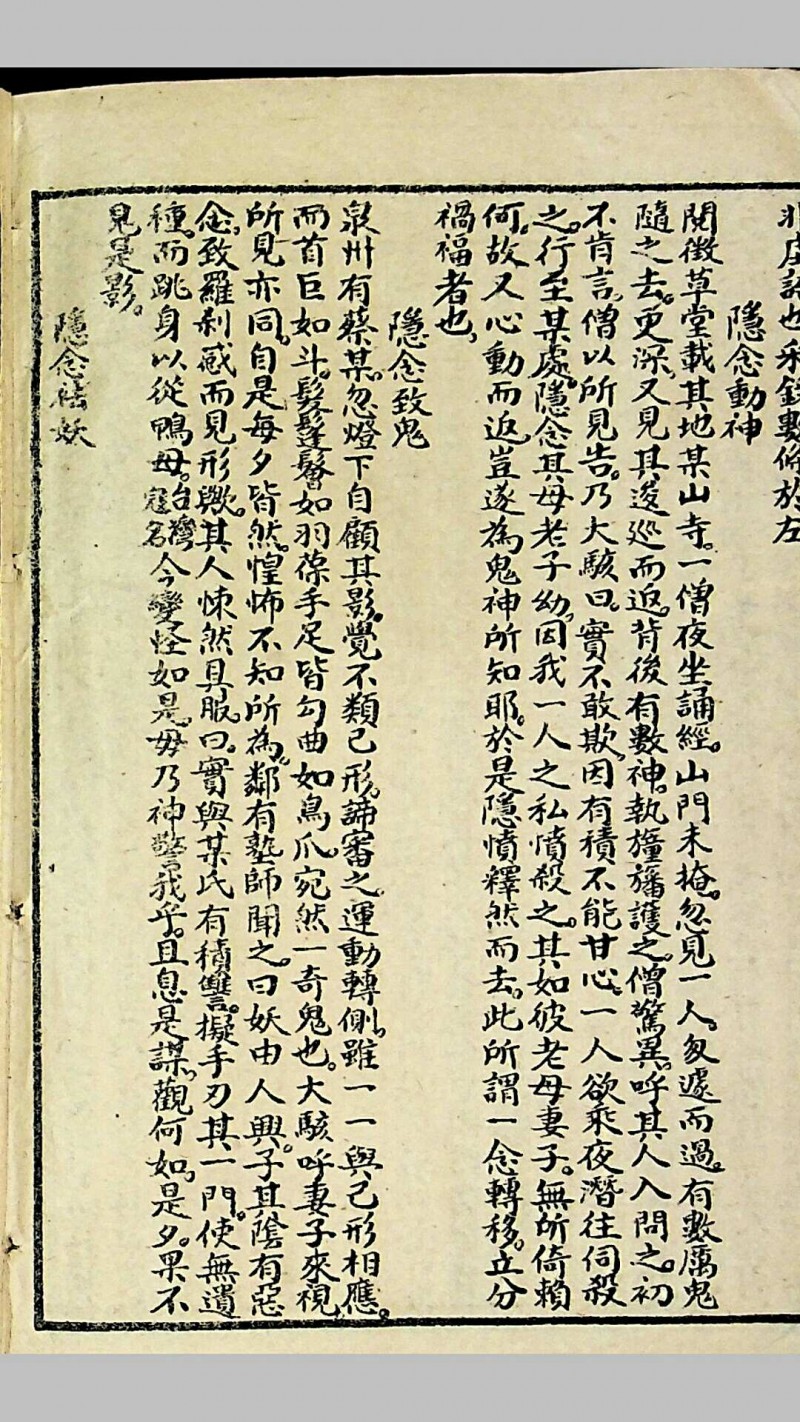 非虛語也采錄數條於左
隱念動神
閱微草堂載其地某山寺。一僧夜坐誦經。山門未掩。忽見一人。匆遽而過。有數厲鬼
隨之去。更深。又見其逡巡而返。背後有數神。執旛幢護之。僧驚異。呼其人入問之。初
不肯言。僧以所見告。乃大駭曰。實不敢欺。因有積不能甘心。一人欲乘夜潛往伺殺
之。行至某處。隱念其母老子幼。因我一人之私憤殺之。其如彼老母妻子。無所倚賴
何。故又心動而返。豈遂為鬼神所知耶。於是隱憤釋然而去。此所謂一念轉移。立分
禍福者也。
隱念致鬼
泉州有蔡某。忽燈下自顧其影。覺不類己形。諦審之。運動轉側。雖一一與己形相應。
而首巨如斗。髮鬔鬙如羽葆。手足皆勾曲如鳥爪。宛然一奇鬼也。大駭。呼妻子來視。
所見亦同。自是每夕皆然。惶怖不知所為。鄰有塾師聞之。曰妖由人興。子其陰有惡
念。致羅剎感而見形歟。其人悚然具服。曰。實與某氏有積讐。擬手刃其一門。使無遺
種。而跳身以從鴨母。台灣寇名今變怪如是。毋乃神警我乎。且息是謀。觀何如。是夕。果不
見是影。
隱念祛妖